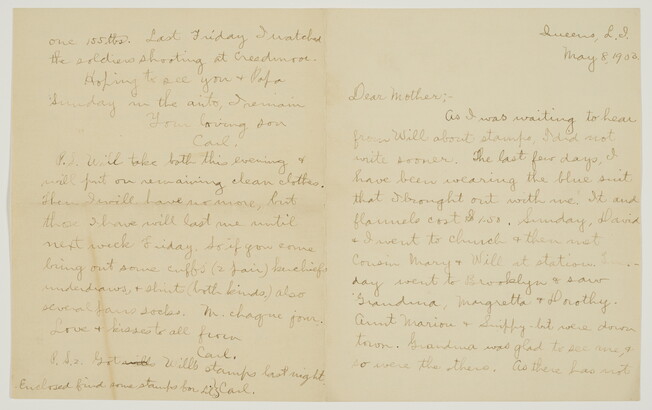 Queens, L.I.
May 8, 1903.
Dear Mother;-
As I was waiting to hear
from Will about stamps, I did not
write sooner. The last few days, I
have been wearing the blue suit
that I brought out with me. It and
flannels cost $1.50. Sunday, David
& I went to church & then met
Cousin Mary & Will at station
day went to Brooklyn & saw
Grandma, Margretta & Dorothy.
Aunt Marion & Snippy-bit were down
town. Grandma was glad to see me, &
so were the others. As there has not
one 155 lbs. Last Friday I watched
the soldiers shooting at Creedmoor.
Hoping to see you & Papa
Sunday in the auto, I remain
Your loving son
Carl.
P.S. Will take bath this evening &
will put on remaining clean clothes.
Then I will have no more, but
those I have will last me until
next week Friday. So if you come
bring out some cuffs (2 pair) kerchiefs
underdraws, & shirt (both kinds) also
several pairs socks. M. chaque jour.
Love & kisses to all from
Carl.
P.S.2. Got will Will's stamps last night.
Enclosed find some stamps for Carl.